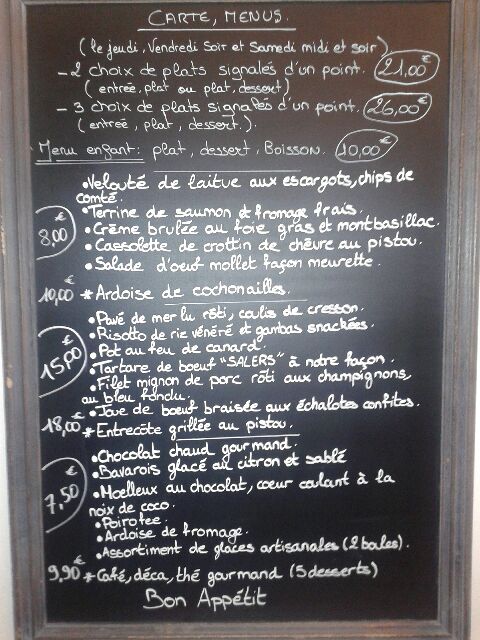 CARTE, MENUS.
(le jeudi, Vendredi Soir et Samedi midi et soir)
- 2 choix de plats signalés d'un point. 21,00€
(entrée, plat ou plat, dessert)
- 3 choix de plats signalés d'un point. 26,00€
(entrée, plat, dessert.).
Menu enfant: plat, dessert, Boisson. 10,00€
•Velouté de laitue aux escargots, chips de
comté.
•Terrine de saumon et fromage frais.
8,00€ •Crème brulée au foie gras et montbasillac.
•Cassolette de crottin de chêvre au pistou.
•Salade d'oeuf mollet façon meurette.
10,00€ *Ardoise de cochonailles.
•Pavé de mer lu rôti, coulis de cresson.
•Risotto de riz vénéré et gambas snackées.
15,00€ •Pot au feu de canard.
•Tartare de boeuf "SALERS" à notre façon.
•Filet mignon de porc rôti aux champignons,
au bleu fondu.
•Joue de boeuf braisée aux échalotes confites.
18,00€ *Entrecôte grillée au pistou.
•Chocolat chaud gourmand.
•Bavarois glacé au citron et sablé
7,50€ •Moelleux au chocolat, coeur coulant à la
noix de coco.
•Poirotee.
•Ardoise de fromage.
•Assortiment de glaces artisanales (2 boules).
9,90€ *Café, déca, thé gourmand (5 desserts)
Bon Appétit